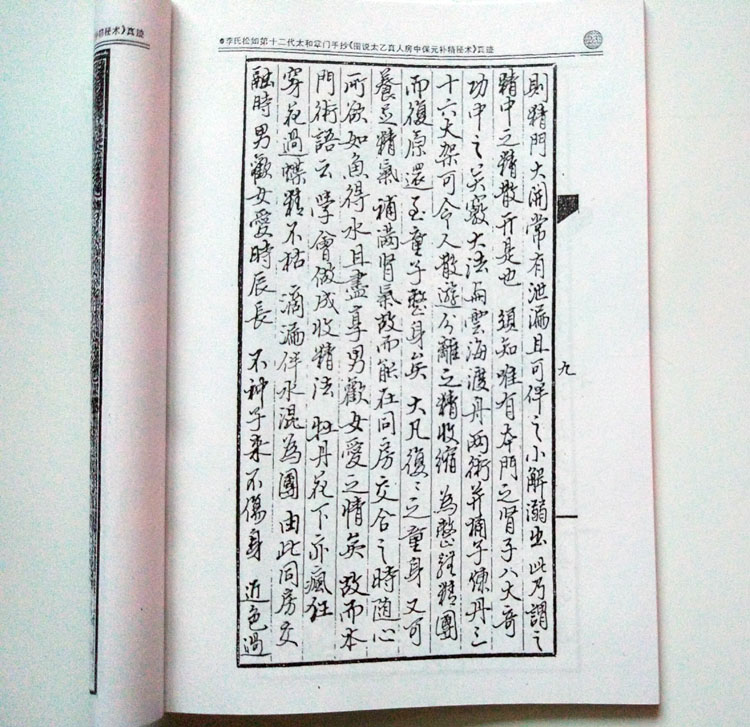 补精秘术》真迹
●李氏松如第十二代太和掌门手抄《图说太乙真人房中保元补精秘术》真迹
則精門大開常有泄漏且可伴之小解溺出此乃謂之
精中之精散開是也 須知唯有本門之腎子八大奇
功中之关竅大法向雲海渡丹两術并補子煉丹三
十六大架可令人散遊分離之精收缩為整经精團
而復原還至童子整身矣 大凡復々之童身又可
養足精氣補满腎氣故而能在同房交合之時随心
所欲如魚得水且盡享男歡女愛之情矣 故而本
門術語云學會做成收精法 牡丹花下亦瘋狂
穿花過蝶精不枯 滴漏伴水混為團 由此同房交
融時男歡女愛時辰長 不种子来不傷身 近色過
九